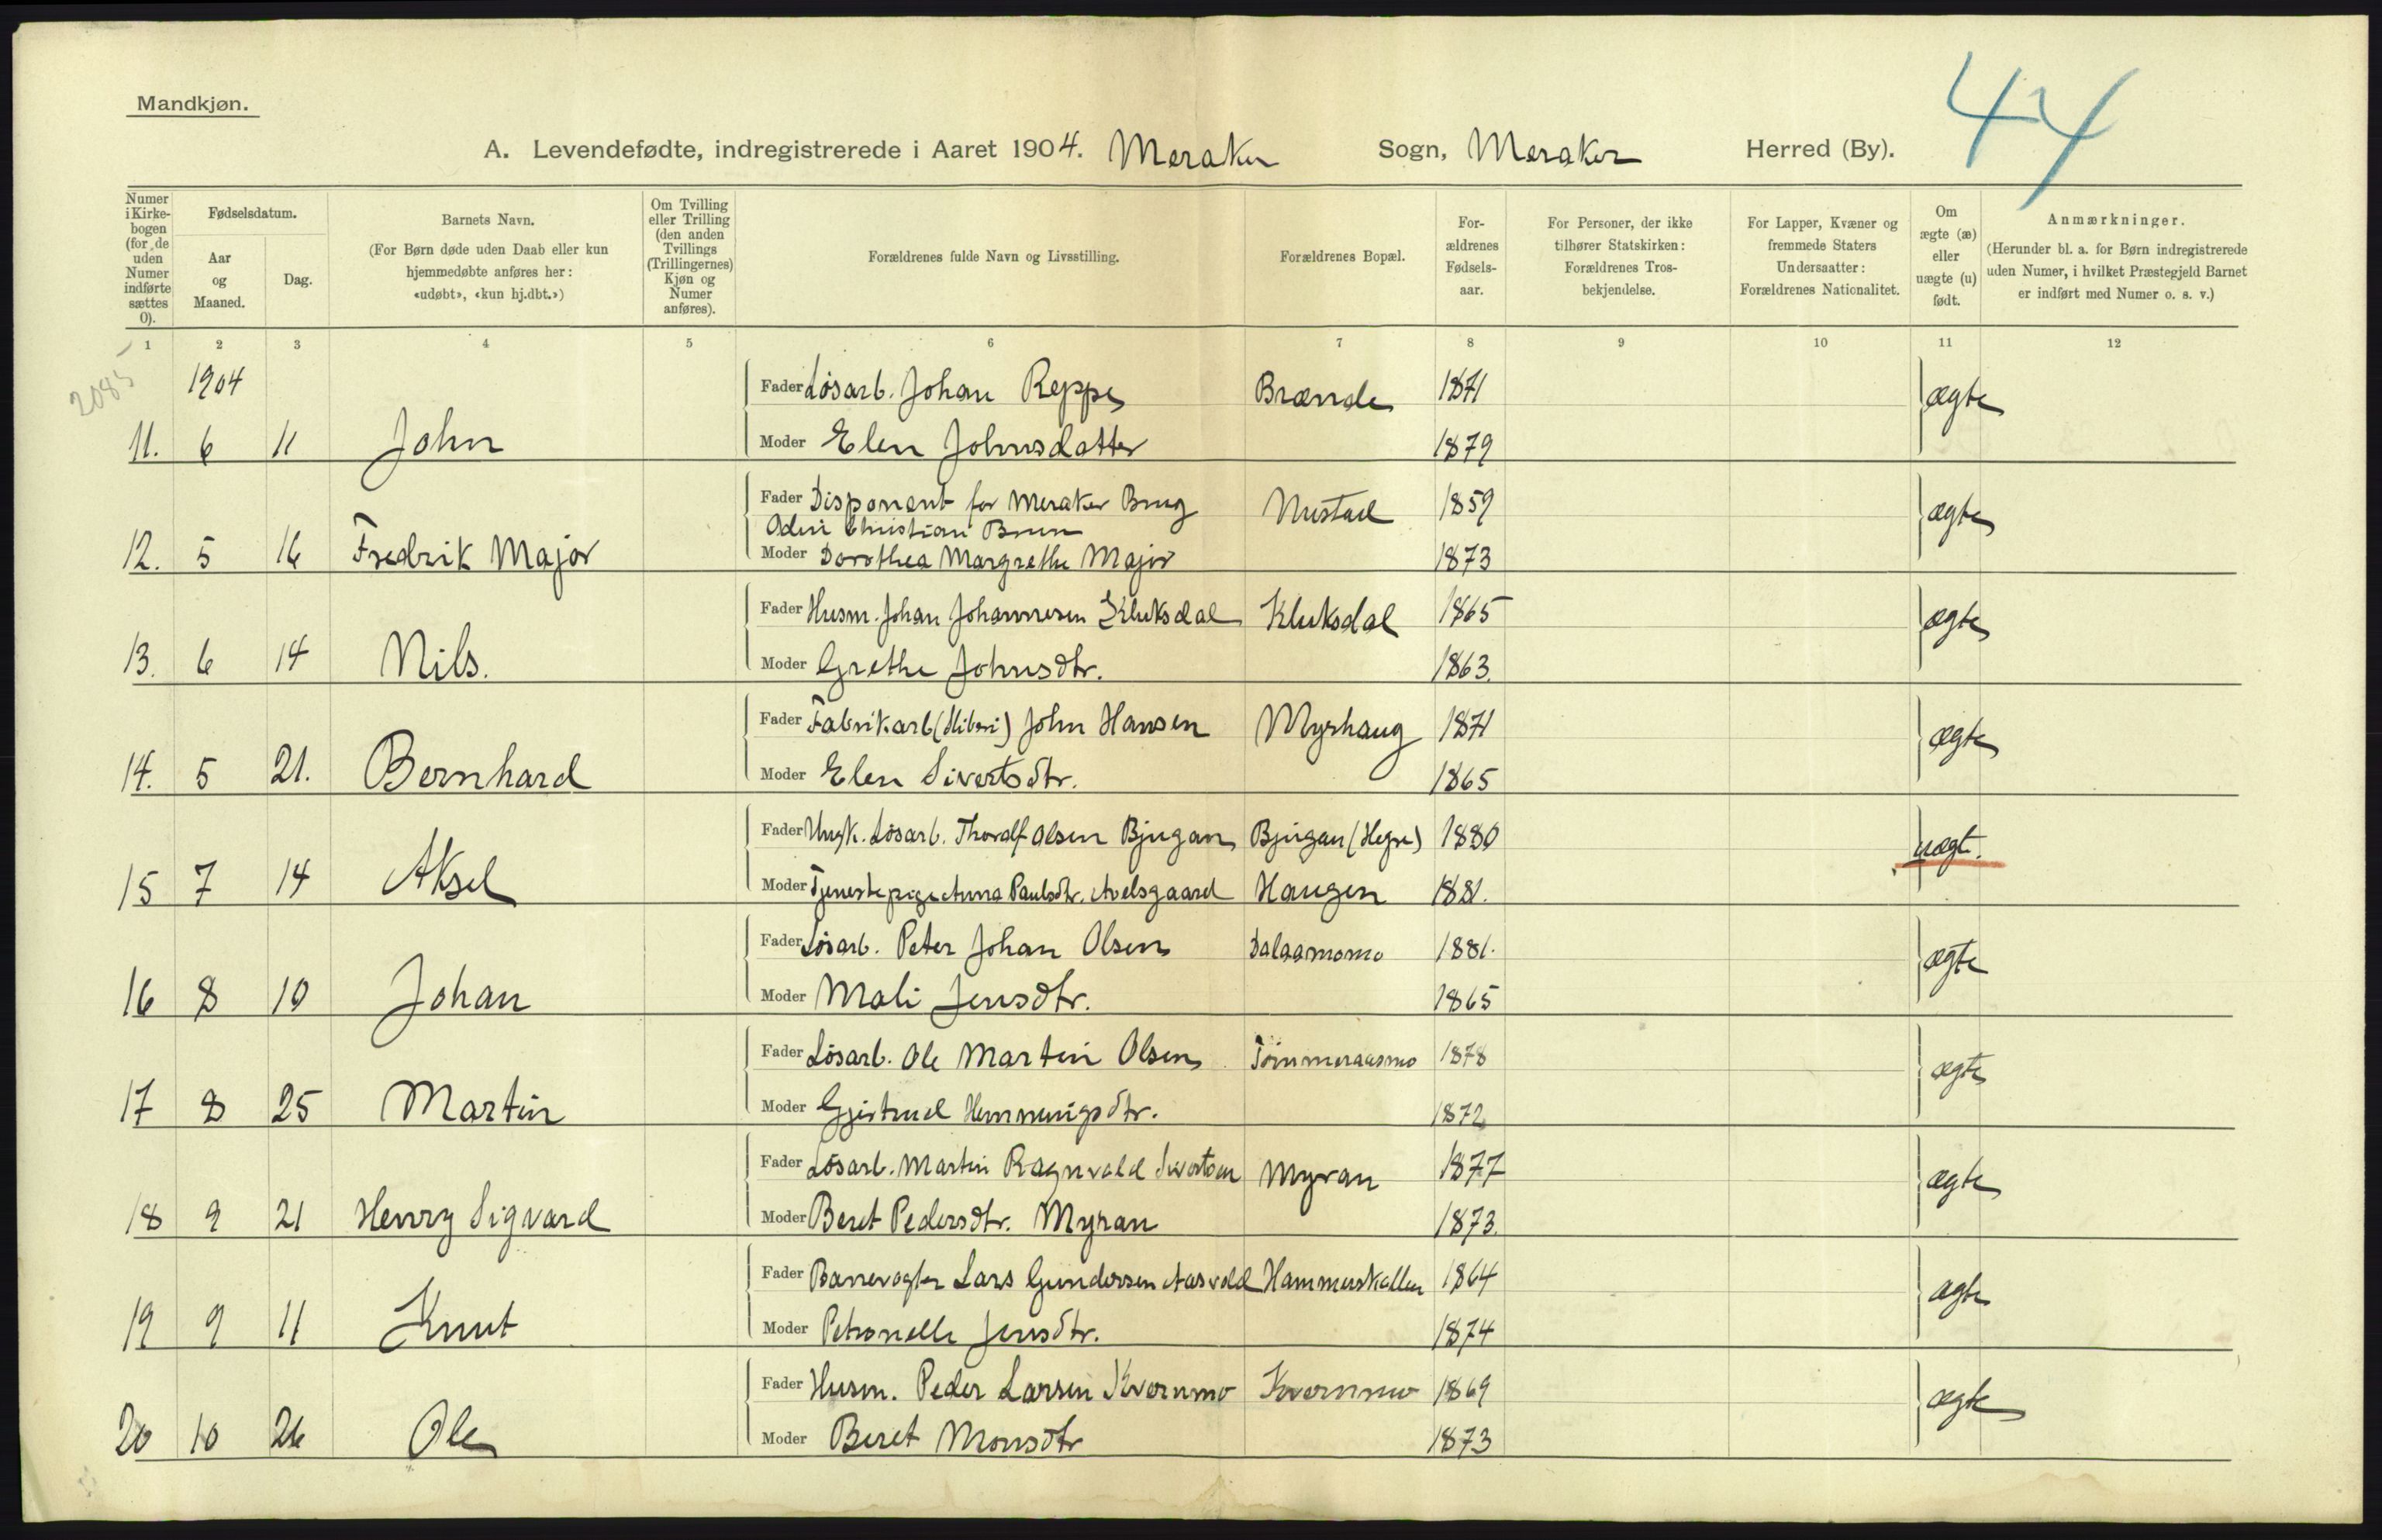 Mandkjøn.
44
A. Levendefødte, indregistrerede i Aaret 1904. Meraker Sogn, Meraker Herred (By).
Numer i Kirke- bogen (for de uden Numer indførte sættes 0).
Fødselsdatum.
Aar og Maaned.
Dag.
Barnets Navn.
(For Børn døde uden Daab eller kun hjemmedøbte anføres her: «udøbt», «kun hj.dbt.»)
Om Tvilling eller Trilling (den anden Tvillings (Trillingernes) Kjøn og Numer anføres).
Forældrenes fulde Navn og Livsstilling.
Forældrenes Bopæl.
For- ældrenes Fødsels- aar.
For Personer, der ikke tilhører Statskirken: Forældrenes Tros- bekjendelse.
For Lapper, Kvæner og fremmede Staters Undersaatter: Forældrenes Nationalitet.
Om ægte (æ) eller uægte (u) født.
Anmærkninger.
(Herunder bl. a. for Børn indregistrerede uden Numer, i hvilket Præstegjeld Barnet er indført med Numer o. s. v.)
1 2 3 4 5 6 7 8 9 10 11 12
2085
1904
Fader Løsarb. Johan Reppe Brænde 1871 ægte
11. 6 11 John Moder Elen Johnsdatter 1879
Fader Disponent for Meraker Brug Nustad 1859 ægte
Odin Christian Brun
12. 5 16 Fredrik Major Moder Dorothea Margrethe Major 1873
Fader Husm. Johan Johannesen Kluksdal Kluksdal 1865 ægte
13. 6 14 Nils. Moder Grethe Johnsdtr. 1863.
Fader Fabrikarb (Sliberi) John Hansen Myrhaug 1871 ægte
14. 5 21. Bernhard Moder Elen Sivertsdtr. 1865
Fader Ungk. Løsarb. Thoralf Olsen Bjugan Bjugan (Hegre) 1880 uægt.
15 7 14 Aksel Moder Tjenestepige Anna Paulsdtr. Avelsgaard Haugen 1881.
Fader Løsarb. Peter Johan Olsen Dalaamomo 1881. ægte
16 8 10 Johan Moder Mali Jensdtr. 1865
Fader Løsarb. Ole Martin Olsen Tømmeraasmo 1878 ægte
17 8 25 Martin Moder Gjertrud Hemmingsdtr. 1872
Fader Løsarb. Martin Ragnvald Sivertsen Myran 1877 ægte
18 9 21 Henry Sigvard Moder Beret Pedersdtr. Myran 1873.
Fader Banevogter Lars Gundersen Aasvold Hammerskallen 1864 ægte
19 9 11 Knut Moder Petronelle Jensdtr. 1874
Fader Husm. Peder Larsen Kvernmo Kvernmo 1869 ægte
20 10 26 Ole Moder Beret Monsdtr 1873